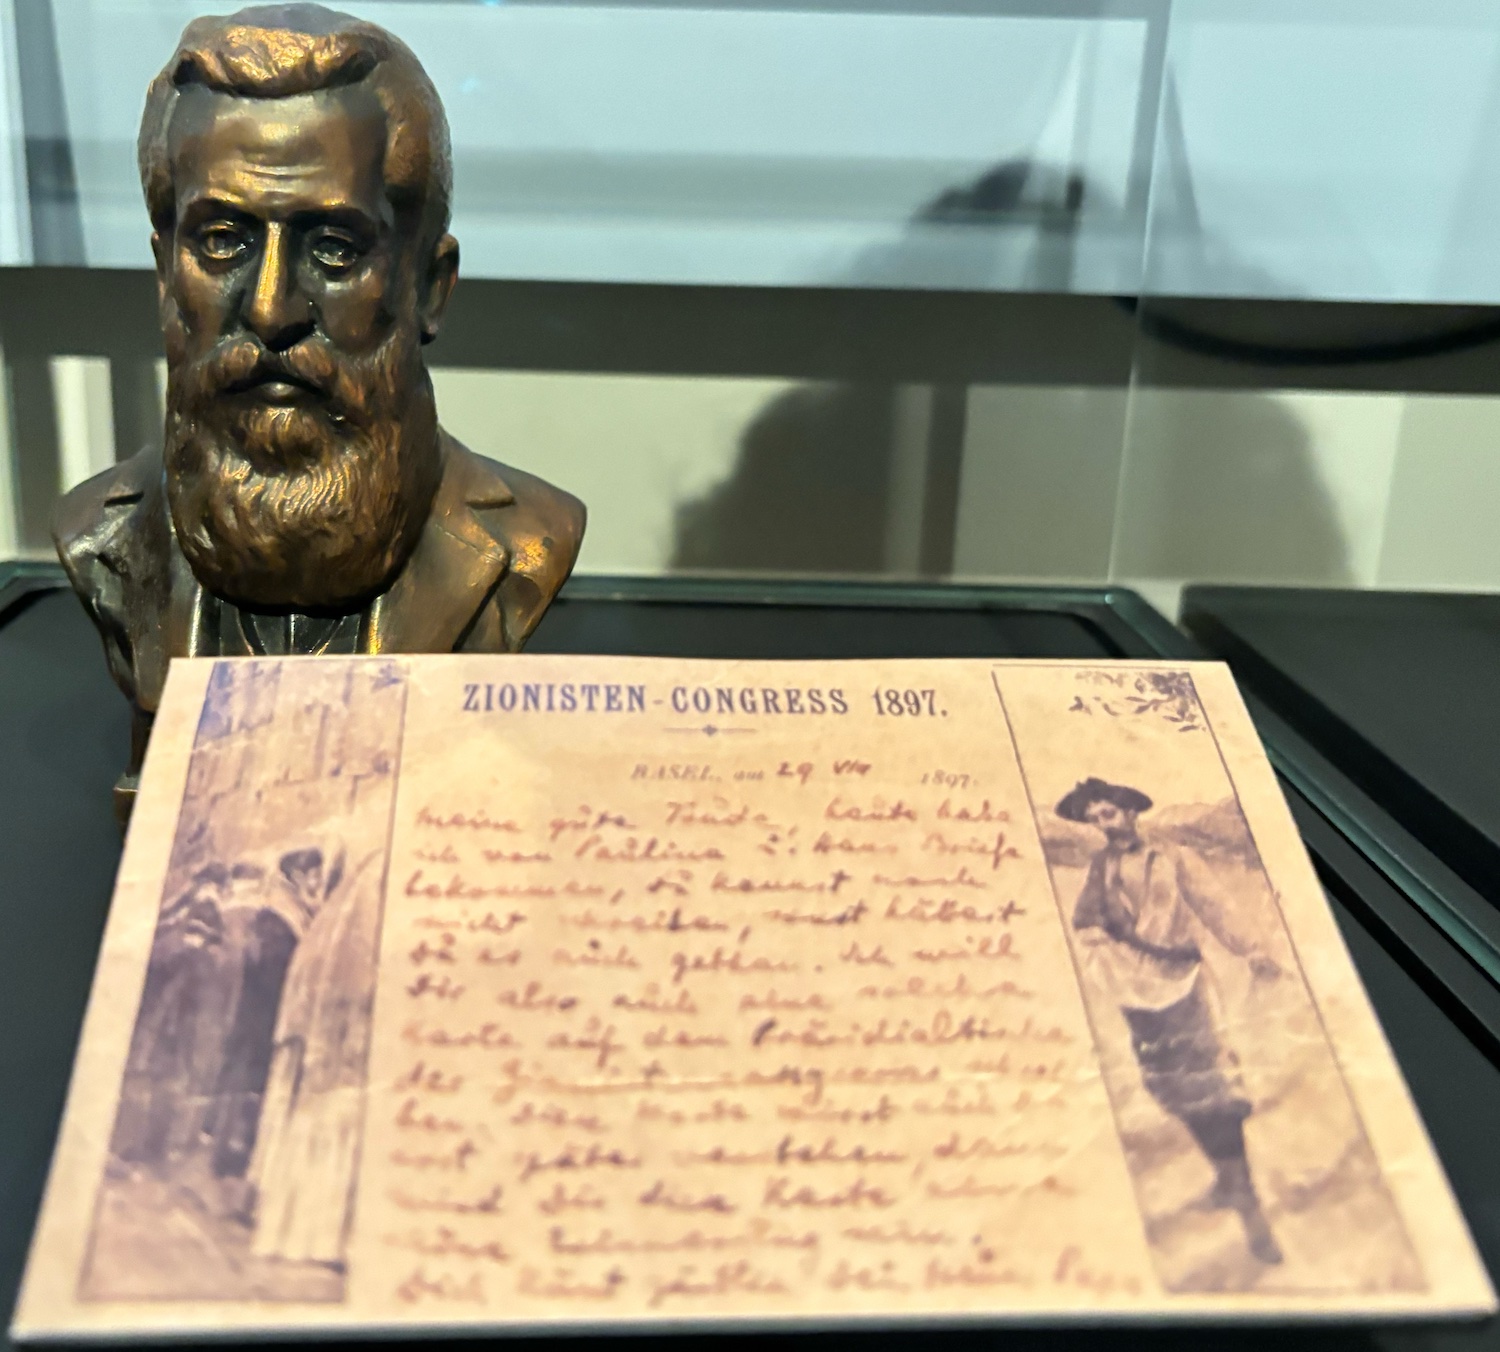 ZIONISTEN-CONGRESS 1897.
BASEL, am 29 VIII 1897.
meine gute Trude, heute habe
ich von Paulina u. Hans Briefe
bekommen, Du kannst noch
nicht schreiben, sonst hättest
Du es auch gethan. Ich will
Dir also auch eine solche
Karte auf dem Präsidialtische
des Zionistencongresses schrei
ben. Diese Karte wirst auch Du
erst später verstehen, dann
wird Dir diese Karte eine
Erinnerung sein.
Dich küsst Dein Papa